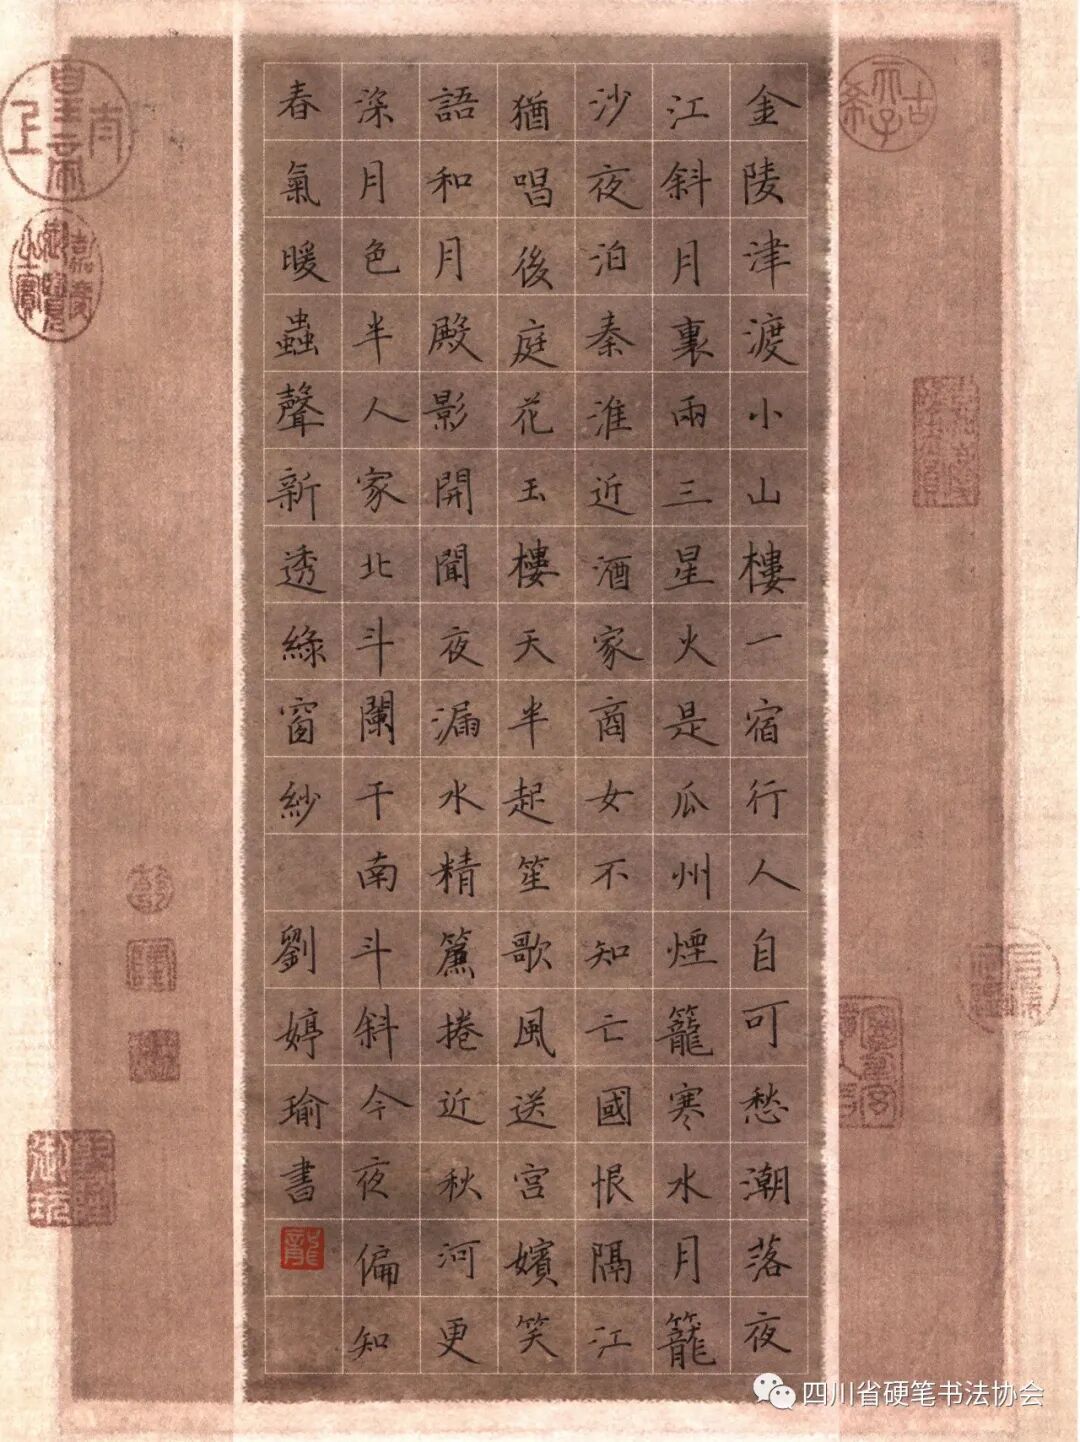 金陵津渡小山樓一宿行人自可愁潮落夜
江斜月裏兩三星火是瓜州煙籠寒水月籠
沙夜泊秦淮近酒家商女不知亡國恨隔江
猶唱後庭花玉樓天半起笙歌風送宮嬪笑
語和月殿影開聞夜漏水精簾捲近秋河更
深月色半人家北斗闌干南斗斜今夜偏知
春氣暖蟲聲新透綠窗紗 劉婷瑜書
四川省硬笔书法协会